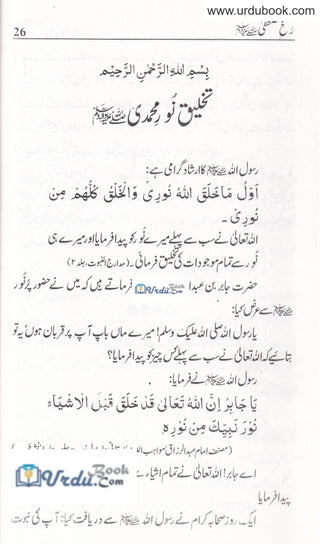 www.urdubook.com
26
رُخِ مصطفٰی ﷺ
بِسْمِ اللهِ الرَّحْمٰنِ الرَّحِيْمِ
تخلیق نُورِ محمدی ﷺ
رسول اللہ ﷺ کا ارشاد گرامی ہے:
اَوَّلُ مَا خَلَقَ اللهُ نُوْرِیْ وَالْخَلْقُ كُلُّهُمْ مِنْ
نُوْرِیْ۔
اللہ تعالیٰ نے سب سے پہلے میرے نُور کو پیدا فرمایا اور میرے ہی
نُور سے تمام موجودات کی تخلیق فرمائی۔ (مدارج النبوت، جلد ۲)
حضرت جابر بن عبد اللہ فرماتے ہیں کہ میں نے حضور پُرنُور
ﷺ سے عرض کیا:
یا رسول اللہ صلی اللہ علیک وسلم! میرے ماں باپ آپ پر قربان ہوں یہ تو
بتائیے کہ اللہ تعالیٰ نے سب سے پہلے کس چیز کو پیدا فرمایا؟
رسول اللہ ﷺ نے فرمایا:
يَا جَابِرُ اِنَّ اللهَ تَعَالٰى قَدْ خَلَقَ قَبْلَ الْاَشْيَاءِ
نُوْرَ نَبِيِّكَ مِنْ نُوْرِهٖ
(مصنف امام عبدالرزاق، مواہب اللدنیہ
اے جابر! اللہ تعالیٰ نے تمام اشیاء سے
پیدا فرمایا
ایک روز صحابہ کرام نے رسول اللہ ﷺ سے دریافت کیا: آپ کی نبوت
UrduBook.com